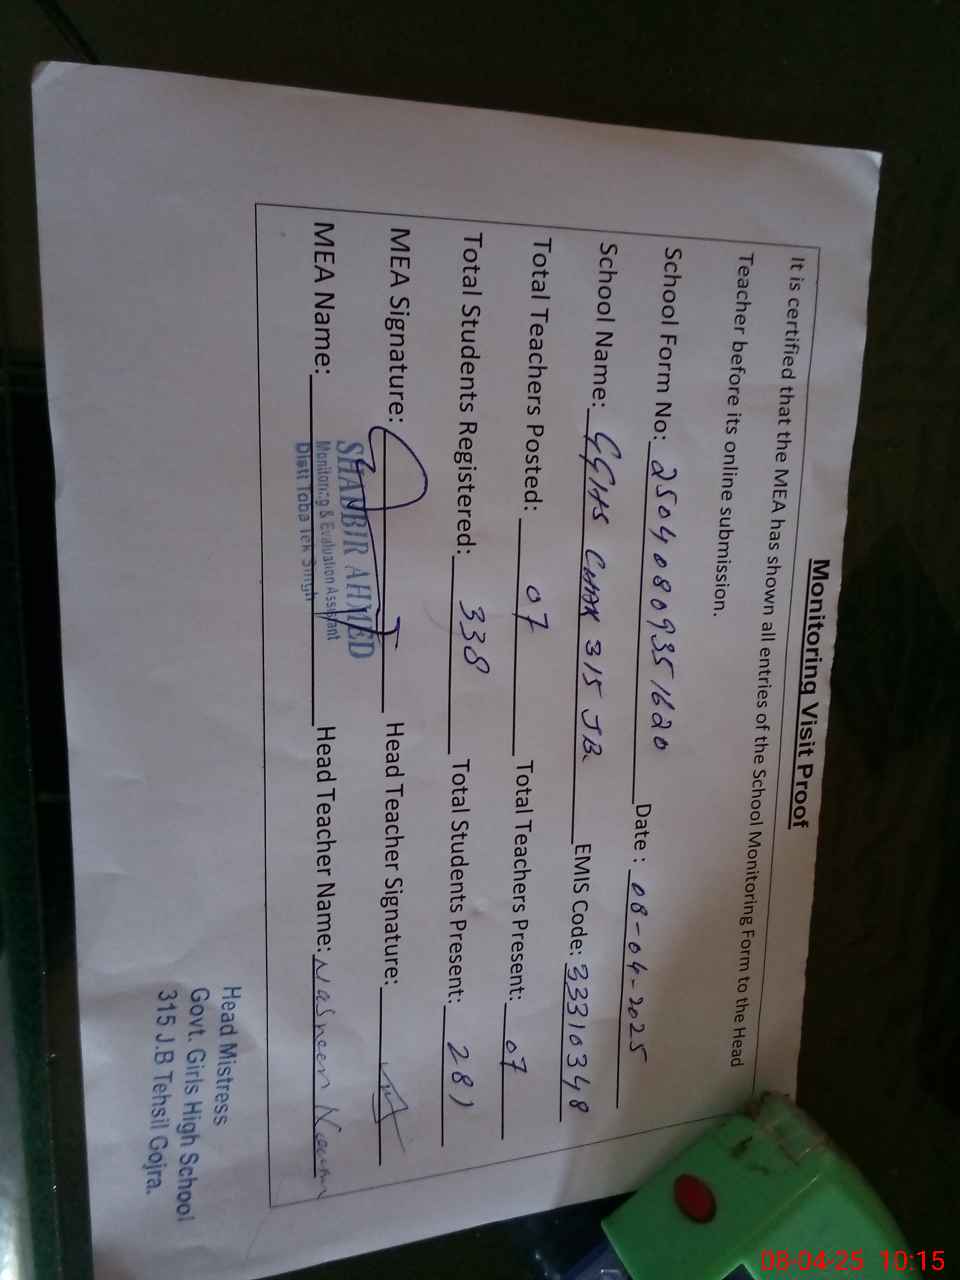 Monitoring Visit Proof
It is certified that the MEA has shown all entries of the School Monitoring Form to the Head
Teacher before its online submission.
School Form No: 25040809351620 Date : 08-04-2025
School Name: GGHS CHAK 315 JB. EMIS Code: 33310348
Total Teachers Posted: 07 Total Teachers Present: 07
Total Students Registered: 338 Total Students Present: 281
MEA Signature: Head Teacher Signature:
MEA Name: Head Teacher Name: Nasneen
SHANBIR AHMED
Monitoring & Evaluation Assistant
Distt Toba Tek Singh
Head Mistress
Govt. Girls High School
315 J.B Tehsil Gojra.
08-04-25 10:15